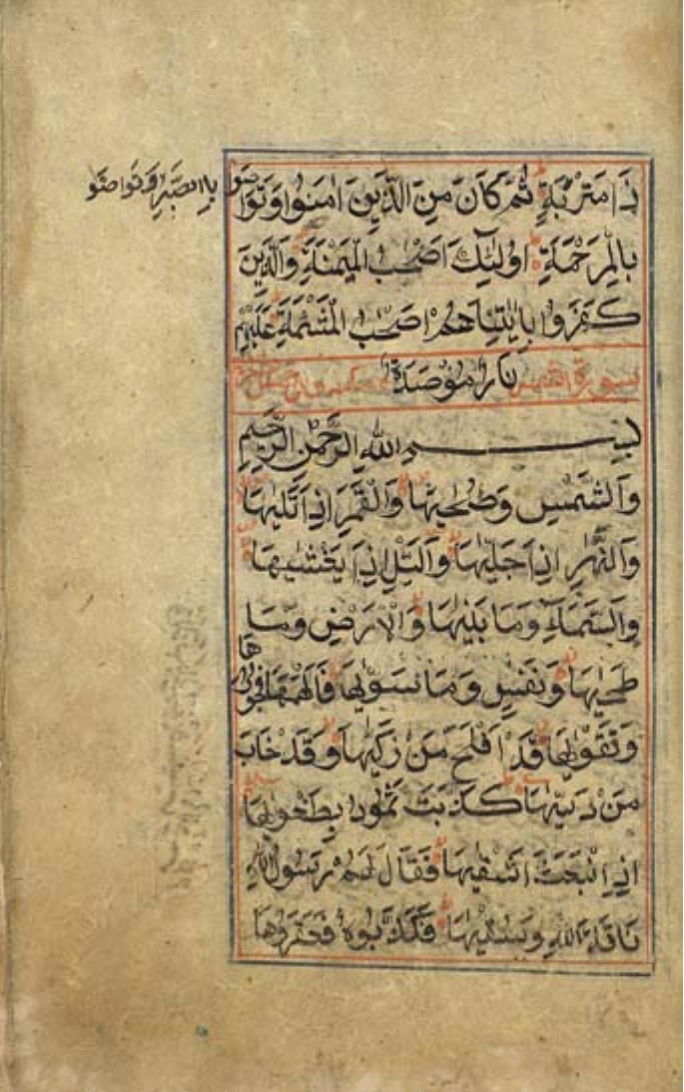 ذَا مَتْرَبَةٍ ثُمَّ كَانَ مِنَ الَّذِينَ اٰمَنُوا وَتَوَاصَوْا
بِاالصَّبْرِ وَتَوَاصَوْ
بِالْمَرْحَمَةِ اُولٰئِكَ اَصْحٰبُ الْمَيْمَنَةِ وَالَّذِينَ
كَفَرُوا بِاٰيٰتِنَا هُمْ اَصْحٰبُ الْمَشْئَمَةِ عَلَيْهِمْ
نَارٌ مُؤْصَدَةٌ
سورة الشمس
بِسْمِ اللّٰهِ الرَّحْمٰنِ الرَّحِيمِ
وَالشَّمْسِ وَضُحٰيهَا وَالْقَمَرِ اِذَا تَلٰيهَا
وَالنَّهَارِ اِذَا جَلّٰيهَا وَالَّيْلِ اِذَا يَغْشٰيهَا
وَالسَّمَاءِ وَمَا بَنٰيهَا وَالْاَرْضِ وَمَا
طَحٰيهَا وَنَفْسٍ وَمَا سَوّٰيهَا فَاَلْهَمَهَا فُجُورَهَا
وَتَقْوٰيهَا قَدْ اَفْلَحَ مَنْ زَكّٰيهَا وَقَدْ خَابَ
مَنْ دَسّٰيهَا كَذَّبَتْ ثَمُودُ بِطَغْوٰيهَا
اِذِ انْبَعَثَ اَشْقٰيهَا فَقَالَ لَهُمْ رَسُولُ اللّٰهِ
نَاقَةَ اللّٰهِ وَسُقْيٰهَا فَكَذَّبُوهُ فَعَقَرُوهَا